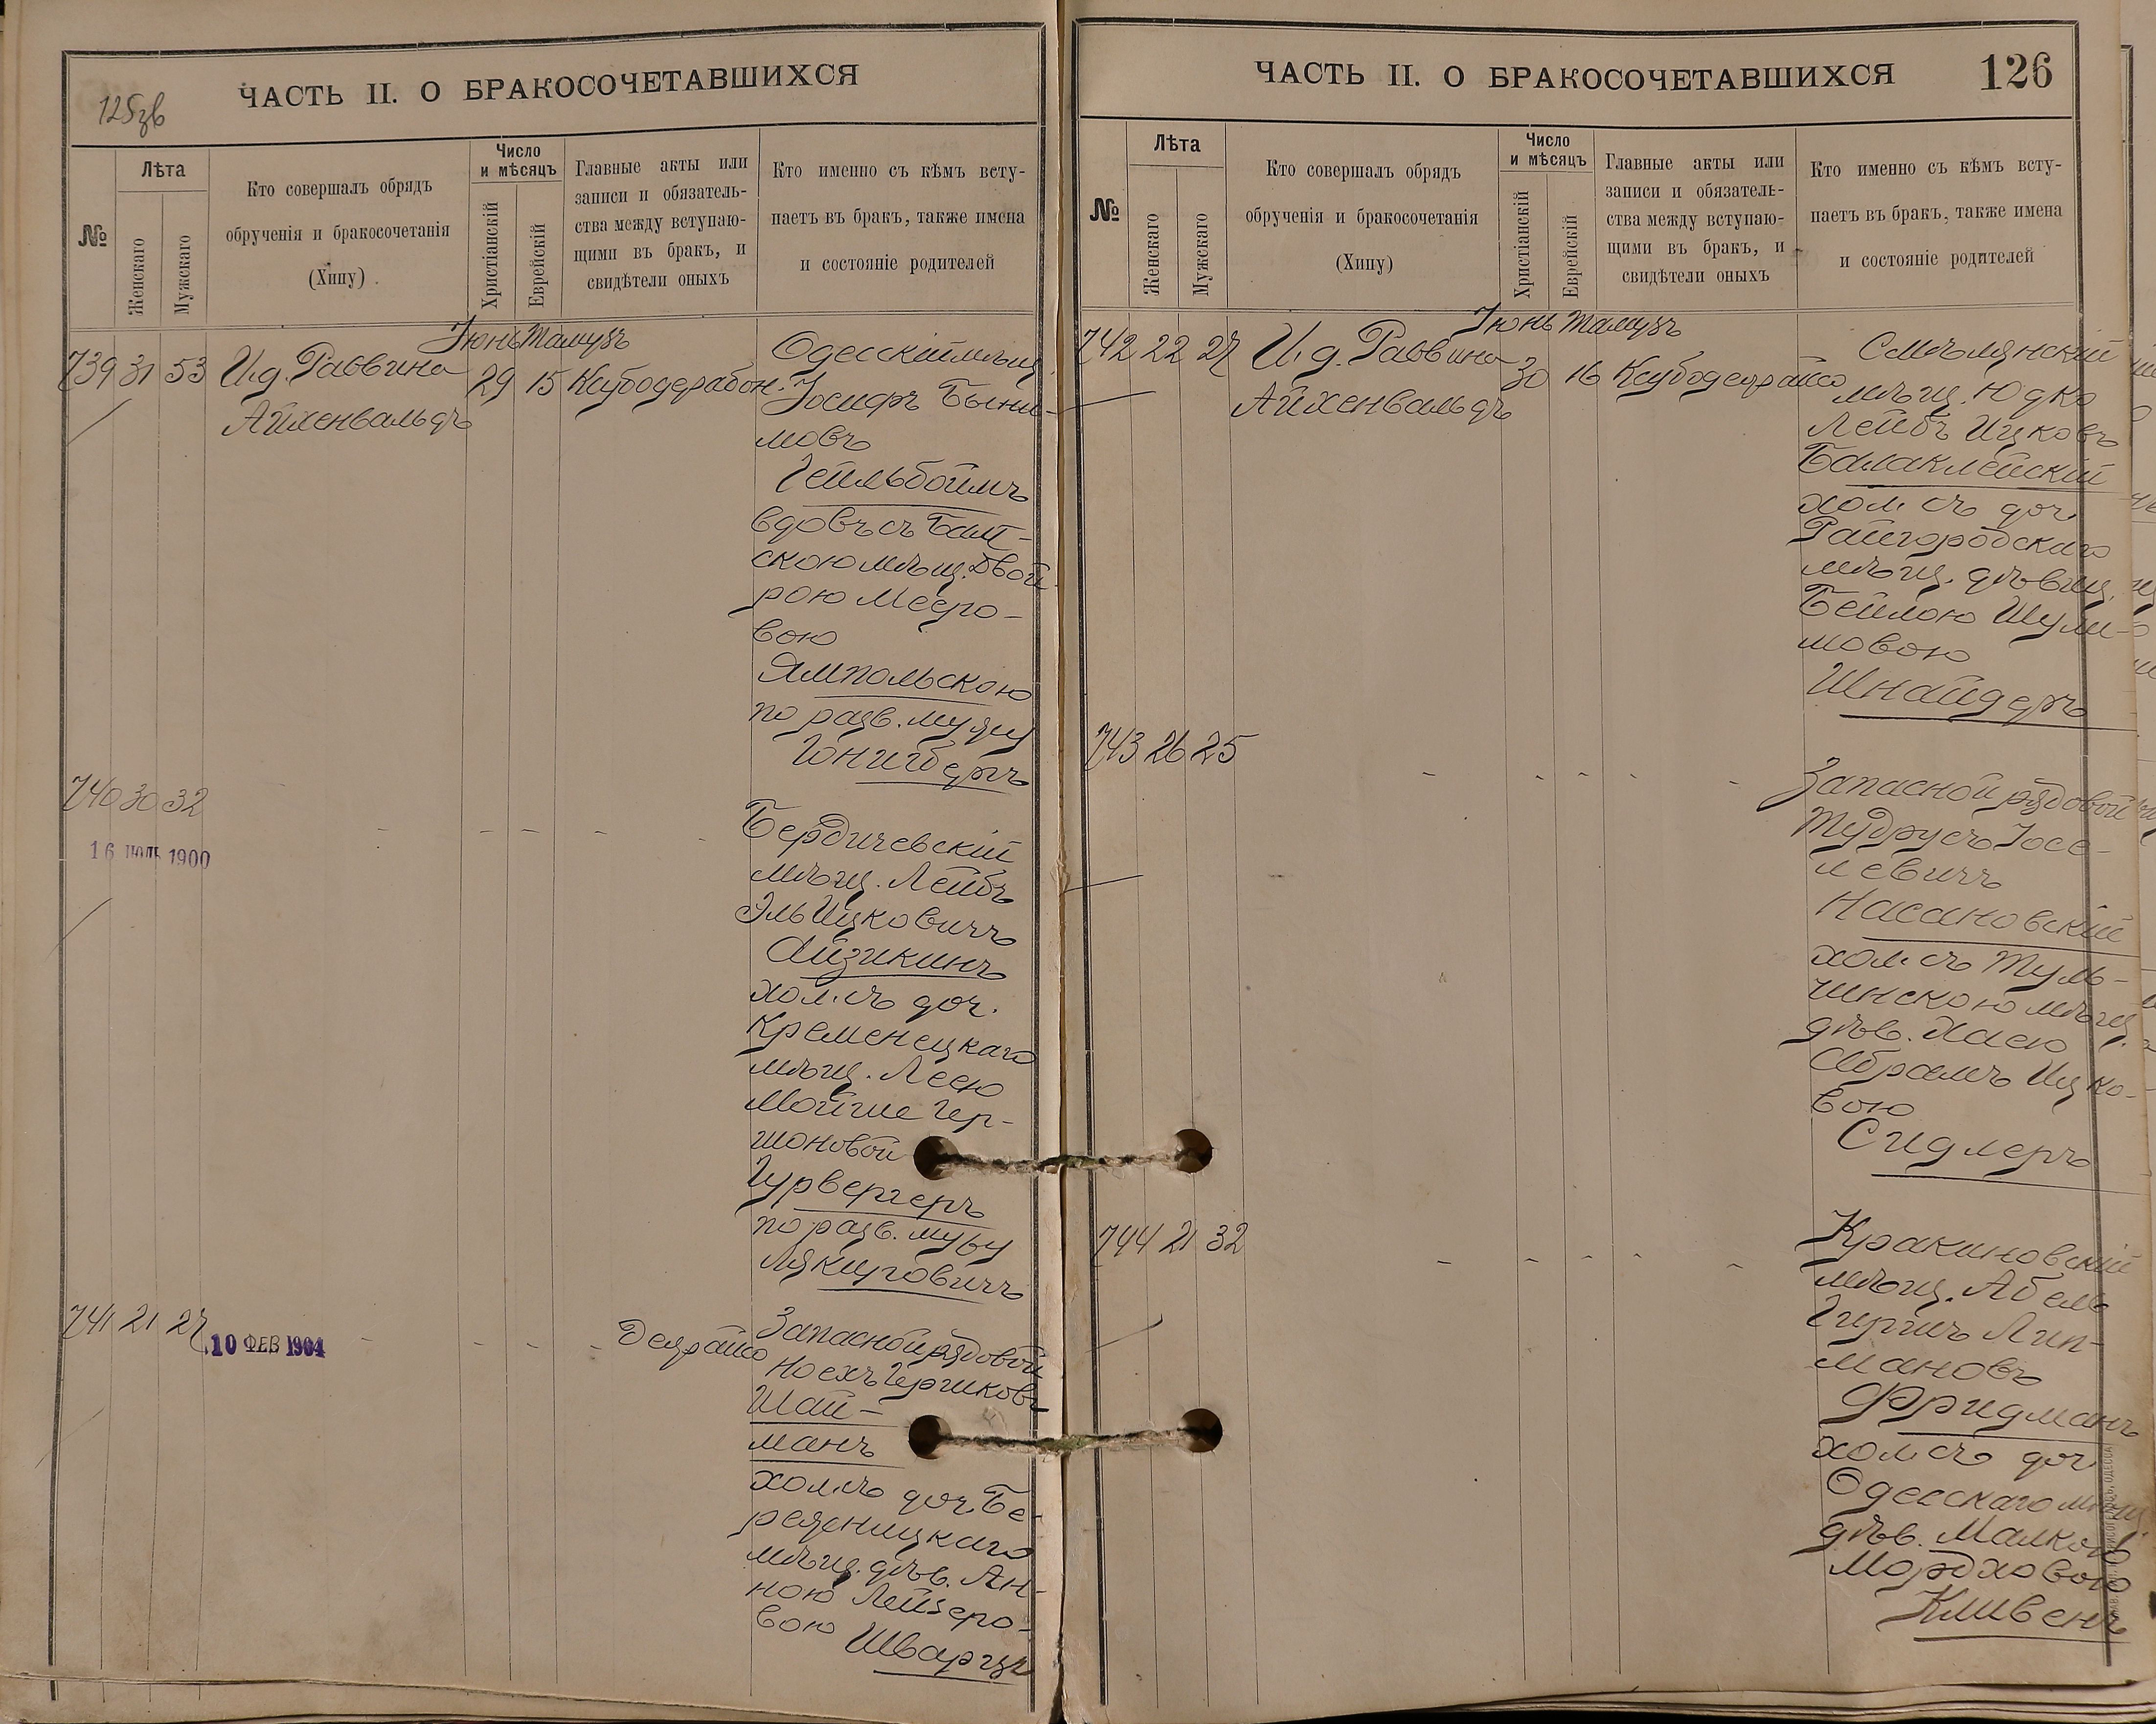 125зв
ЧАСТЬ II. О БРАКОСОЧЕТАВШИХСЯ
№
Лѣта
Женскаго
Мужскаго
Кто совершалъ обрядъ
обрученія и бракосочетанія
(Хипу)
Число
и мѣсяцъ
Христіанскій
Еврейскій
Главные акты или
записи и обязатель-
ства между вступаю-
щими въ бракъ, и
свидѣтели оныхъ
Кто именно съ кѣмъ всту-
паетъ въ бракъ, также имена
и состояніе родителей
Іюнь Тамузъ
739 31 53 И.д. Раввина 29 15
Айхенвальдъ
Одесскій мѣщ.
Іосифъ
мовъ
Гейльбоймъ
вдовъ съ Балт-
скою мѣщ. Двой-
рою Меєро-
вою
Ямпольскою
по разв. мужу
Гонигбергъ
740 30 32 - - - - -
16 ІЮЛЬ 1900
Бердичевскій
мѣщ. Лейбъ
Эль Ицковичъ
Айзикинъ
хол. съ доч.
Кременецкаго
мѣщ. Леею
Мойше Гер-
шоновой
Гурвергеръ
по разв. мужу
741 21 27 - - - -
10 ФЕВ 1904
Запасной рядовой
Ноехъ Гершковъ
Шай-
манъ
хол. съ доч. Бе-
резницкаго
мѣщ. дѣв. Ан-
ною Лейзеро-
вою Шварцъ
ЧАСТЬ II. О БРАКОСОЧЕТАВШИХСЯ
126
№
Лѣта
Женскаго
Мужскаго
Кто совершалъ обрядъ
обрученія и бракосочетанія
(Хипу)
Число
и мѣсяцъ
Христіанскій
Еврейскій
Главные акты или
записи и обязатель-
ства между вступаю-
щими въ бракъ, и
свидѣтели оныхъ
Кто именно съ кѣмъ всту-
паетъ въ бракъ, также имена
и состояніе родителей
Іюнь Тамузъ
742 22 27 И.д. Раввина 30 16
Айхенвальдъ
Смѣлянскій
мѣщ. Юдко
Лейбъ Ицковъ
Балаклейскій
хол. съ доч.
Райгородскаго
мѣщ. дѣвиц.
Бейлою Шули-
мовою
Шнайдеръ
743 26 25 - - - - -
Запасной рядовой
Тудрусъ Іосе-
левичъ
Насановскій
хол. съ Туль-
чинскою мѣщ.
дѣв. Хаею
Абрамъ Ицко-
вою
Сидлеръ
744 21 32 - - - - -
Кракиновскій
мѣщ. Абель
Гиршъ Лип-
мановъ
Фридманъ
хол. съ доч
Одесскаго мѣщ.
дѣв. Малкою
Мордховою
Кливенъ